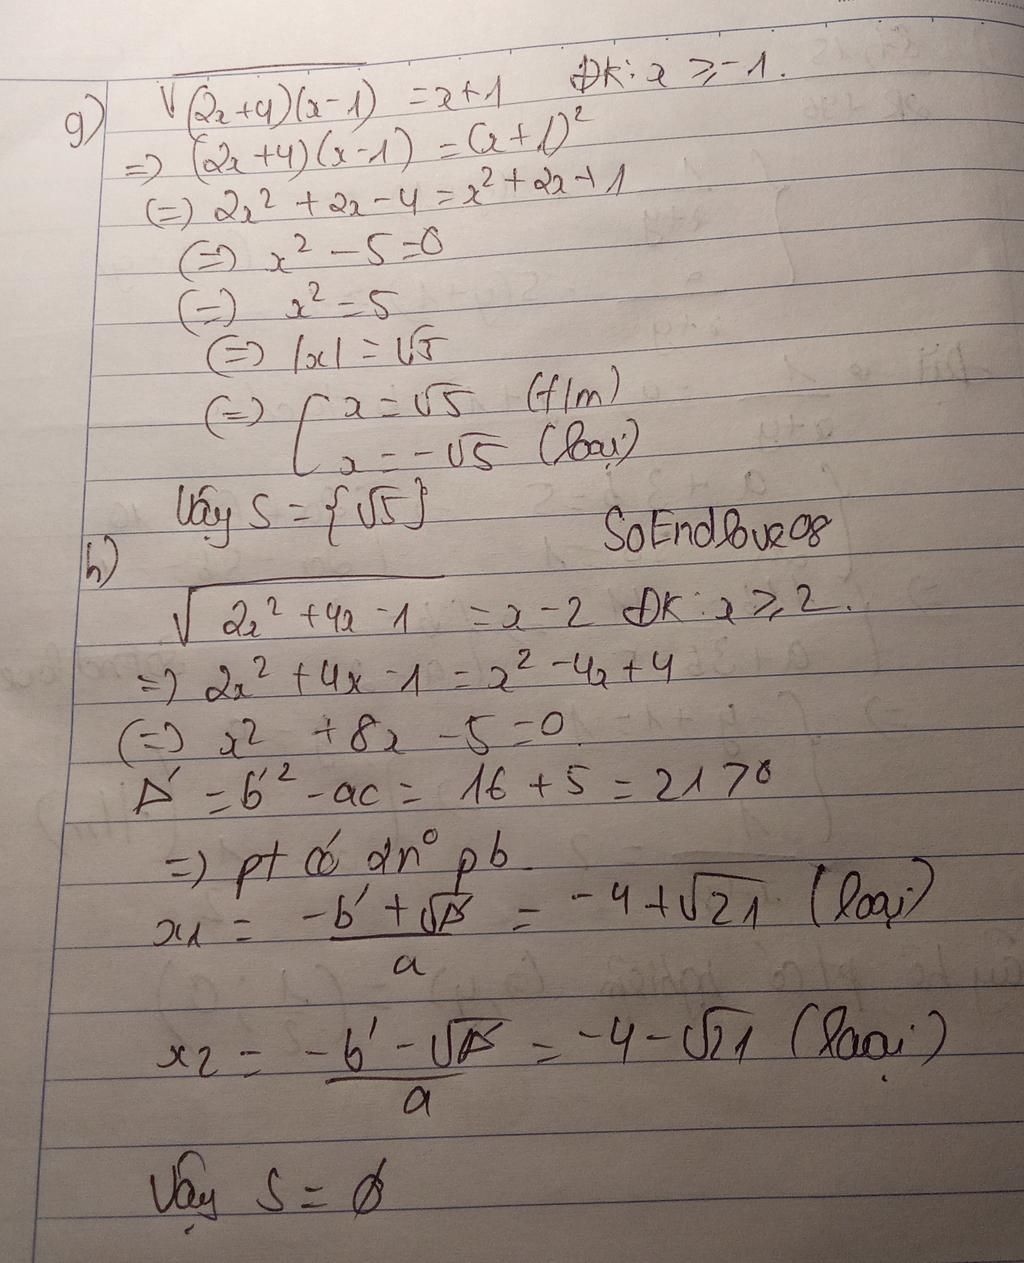 g) √(2x+4)(x-1) = x+1 ĐK: x ≥ -1.
=> (2x+4)(x-1) = (x+1)²
(=) 2x² + 2x - 4 = x² + 2x + 1
(=) x² - 5 = 0
(=) x² = 5
(=) |x| = √5
(=) [ x = √5 (t/m)
x = -√5 (loại)
Vậy S = {√5}
SoEndlove08
h)
√2x² + 4x - 1 = x - 2 ĐK: x ≥ 2.
=> 2x² + 4x - 1 = x² - 4x + 4
(=) x² + 8x - 5 = 0
Δ' = b'² - ac = 16 + 5 = 21 > 0
=> pt có 2n⁰ pb
x1 = -b' + √Δ' / a = -4 + √21 (loại)
x2 = -b' - √Δ' / a = -4 - √21 (loại)
Vậy S = ∅